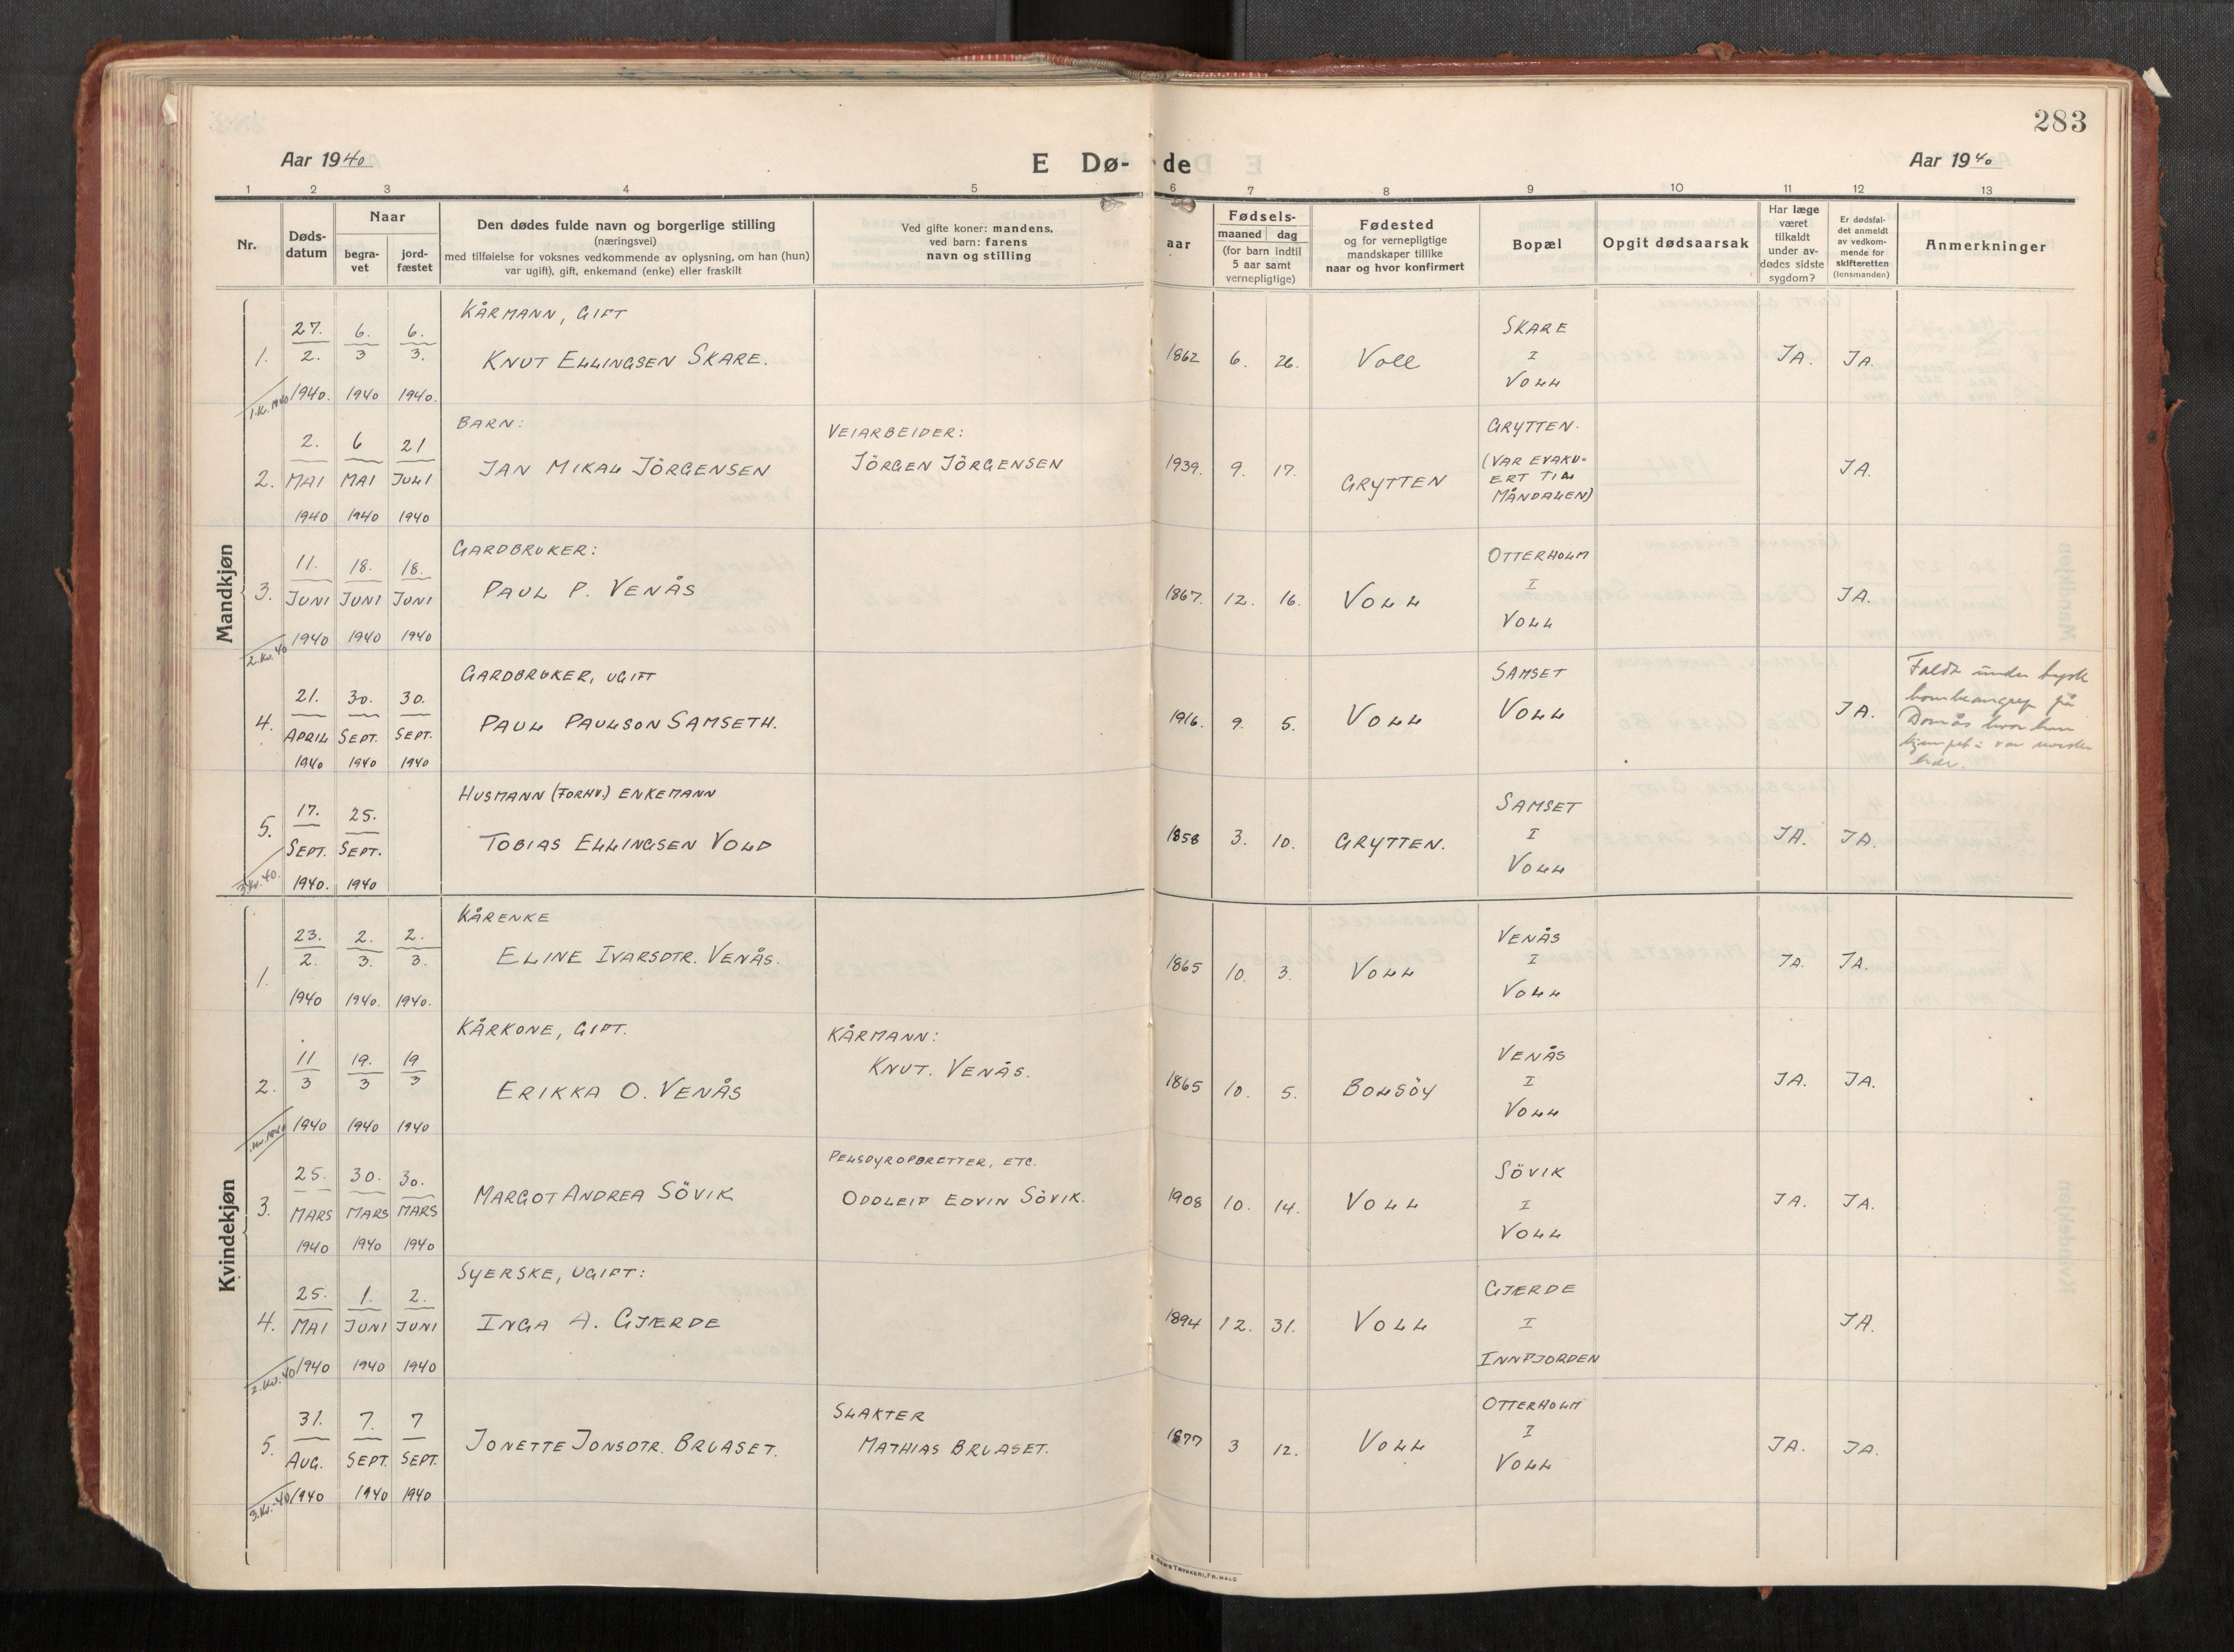 283
Aar 1940
E Dø-
de
Aar 1940
1 2 3 4 5 6 7 8 9 10 11 12 13
Nr.
Døds-
datum
Naar
begra-
vet
jord-
fæstet
Den dødes fulde navn og borgerlige stilling
(næringsvei)
med tilføielse for voksnes vedkommende av oplysning, om han (hun)
var ugift), gift, enkemand (enke) eller fraskilt
Ved gifte koner: mandens,
ved barn: farens
navn og stilling
Fødsels-
aar
maaned dag
(for barn indtil
5 aar samt
vernepligtige)
Fødested
og for vernepligtige
mandskaper tillike
naar og hvor konfirmert
Bopæl
Opgit dødsaarsak
Har læge
været
tilkaldt
under av-
dødes sidste
sygdom?
Er dødsfal-
det anmeldt
av vedkom-
mende for
skifteretten
(lensmanden)
Anmerkninger
Mandkjøn
KÅRMANN, GIFT
27. 6. 6. SKARE
1. 2. 3 3. KNUT ELLINGSEN SKARE. 1862 6. 26. Voll I JA. JA.
1940. 1940 1940. VOLL
1.Kv. 1940
BARN:
VEIARBEIDER: GRYTTEN.
2. 6 21 (VAR EVAKU-
2. MAI MAI JULI JAN MIKAL JÖRGENSEN JÖRGEN JÖRGENSEN 1939. 9. 17. GRYTTEN ERT TIL JA.
1940 1940 1940 MÅNDALEN)
GARDBRUKER:
11. 18. 18. OTTERHOLM
3. JUNI JUNI JUNI PAUL P. VENÅS 1867. 12. 16. VOLL I JA.
1940 1940 1940 VOLL
2.Kv. 40
GARDBRUKER, UGIFT
21. 30. 30. SAMSET
4. APRIL SEPT. SEPT. PAUL PAULSON SAMSETH. 1916. 9. 5. VOLL VOLL JA.
1940 1940 1940
Faldt under tysk
bombeangrep på
Domås hvor han
kjempet i vor norske
hær.
HUSMANN (FORHV.) ENKEMANN
17. 25. SAMSET
5. SEPT. SEPT. TOBIAS ELLINGSEN VOLD 1858 3. 10. GRYTTEN. I JA. JA.
1940. 1940 VOLL
3.Kv. 40.
Kvindekjøn
KÅRENKE
23. 2. 2. VENÅS
1. 2. 3. 3. ELINE IVARSDTR. VENÅS. 1865 10. 3. VOLL I JA. JA.
1940 1940. 1940. VOLL
KÅRKONE, GIFT. KÅRMANN:
11 19. 19 KNUT. VENÅS. VENÅS
2. 3 3 3 ERIKKA O. VENÅS 1865 10. 5. BOLSÖY I JA. JA.
1940 1940 1940 VOLL
1.Kv. 1940
PELSDYROPDRETTER, ETC.
25. 30. 30. SÖVIK
3. MARS MARS MARS MARGOT ANDREA SÖVIK ODDLEIF EDVIN SÖVIK. 1908 10. 14. VOLL I JA. JA.
1940 1940 1940 VOLL
SYERSKE, UGIFT:
25. 1. 2. GJERDE
4. MAI JUNI JUNI INGA A. GJERDE 1894 12. 31. VOLL I JA.
1940 1940 1940 INNFJORDEN
2.Kv. 40
SLAKTER
31. 7. 7 OTTERHOLM
5. AUG. SEPT. SEPT. JONETTE JONSDTR. BRUASET. MATHIAS BRUASET. 1877 3 12. VOLL I JA. JA.
1940 1940 1940 VOLL
3.Kv.-40
TRYKKERI, FR. HALD